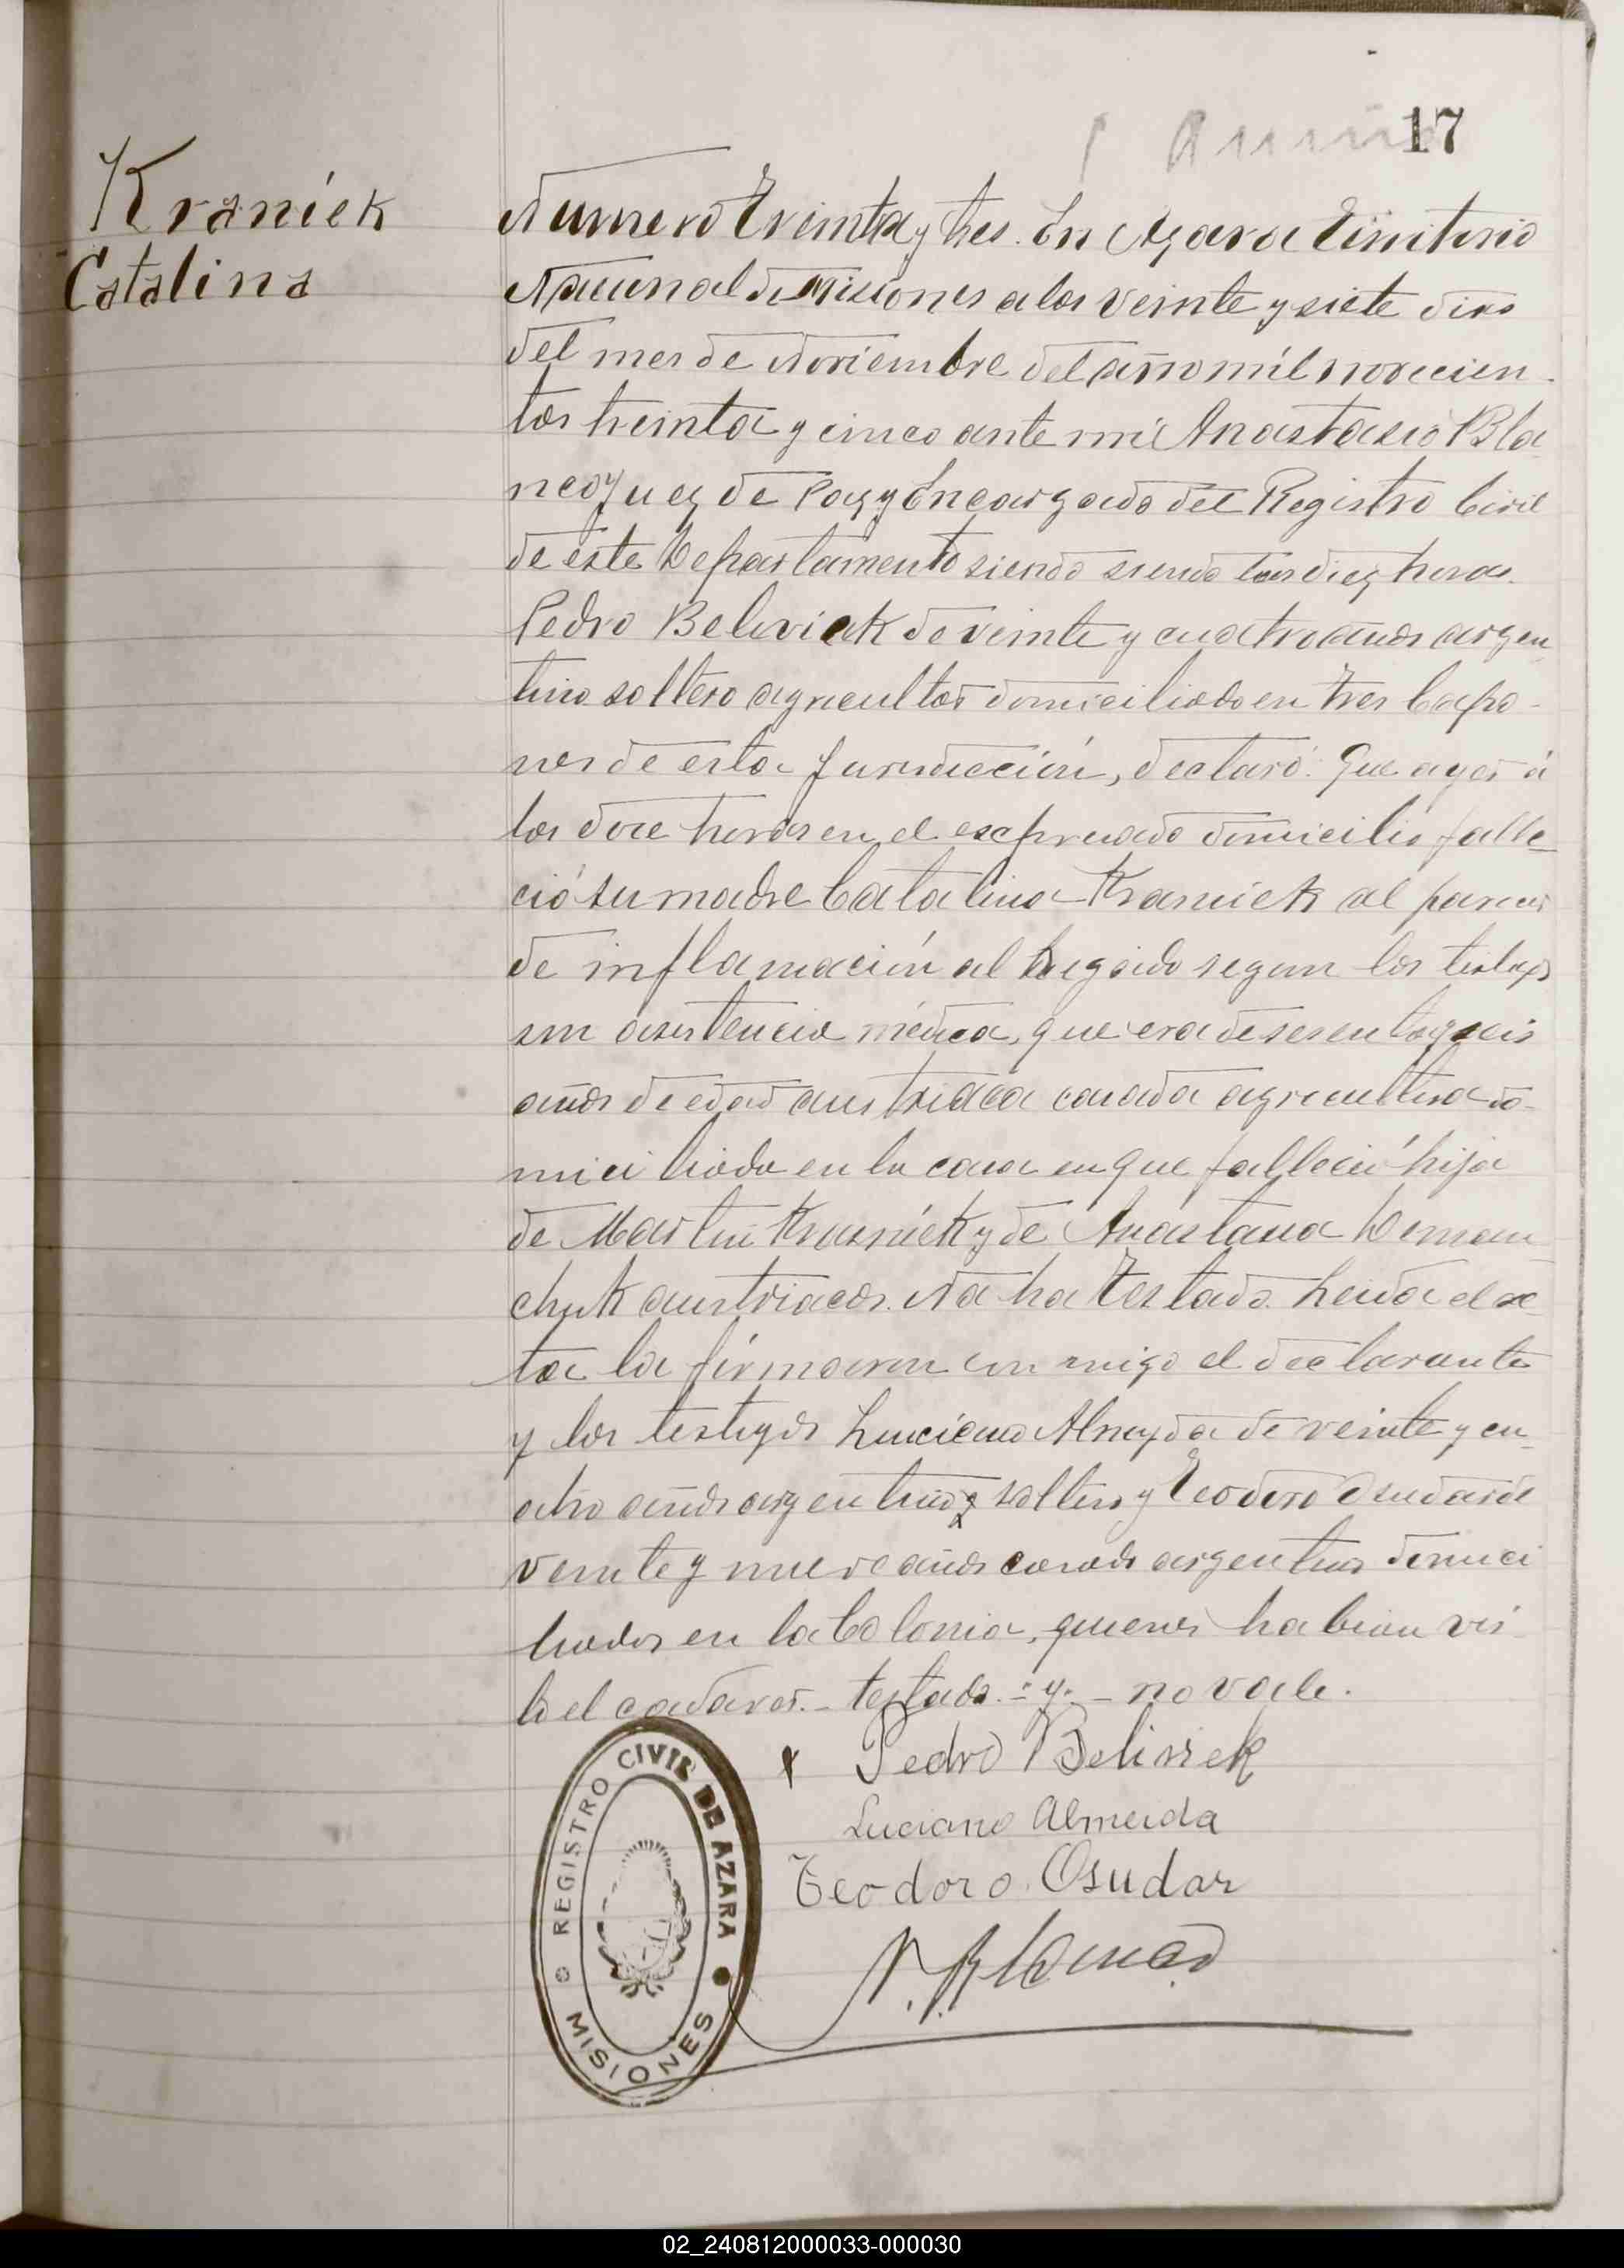 17
Kraniek
Catalina
Numero Treinta y tres. En Azara Territorio
Nacional de Misiones a los veinte y siete dias
del mes de Noviembre del año mil novecien-
tos treinta y cinco ante mi Anastasio Bla-
nco Juez de Paz y Encargado del Registro Civil
de este Departamento siendo siendo las diez horas.
Pedro Beleviek de veinte y cuatro años argen-
tino soltero agricultor domiciliado en Tres Capo-
nes de esta Jurisdicción, declaró: Que ayer á
las doce horas en el expresado domicilio falle-
ció su madre Catalina Kraniek al parecer
de inflamación al hígado segun los testigos
sin asistencia médica, que era de sesenta y seis
años de edad austriaca casada agricultora do-
miciliada en la casa en que falleció hija
de Martin Krasniek y de Anastacia Deman
chuk austriacos. No ha testado. Leida el ac-
ta la firmaron con migo el declarante
y los testigos Luciano Almeyda de veinte y cu-
atro años argentino y soltero y Teodoro Osudar de
veinte y nueve años casado argentinos domici
liados en la Colonia, quienes habian vis-
to el cadaver.- testado.-:y:- no vale.
Pedro Beliviek
Luciano Almeida
Teodoro Osudar
A. Blanco
REGISTRO CIVIL DE AZARA
MISIONES
02_240812000033-000030